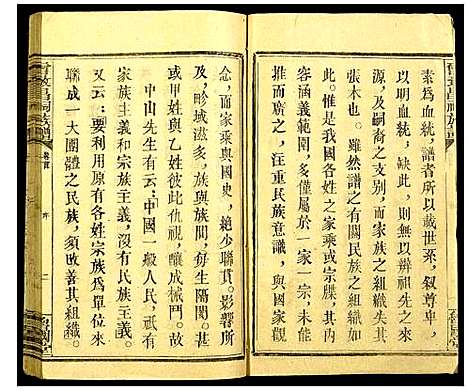 素爲血統,譜者所以載世系,敍尊卑,
以明血統,缺此,則無以辨祖先之來
源,及嗣裔之支別,而民族之組織失其
張本也。雖然譜之有關民族之組織如
此。惟是我國各姓之家乘或宗譜,其內
容涵義範圍,多僅屬於一家一宗,未能
推而廣之,注重民族意識,與國家觀
念,而家乘與國史,絕少聯貫。影響所
及,畛域滋多,族與族間,每生隔閡。甚
或甲姓與乙姓彼此仇視,釀成械鬥。故
中山先生有云:中國一般人民,祇有
家族主義和宗族主義,沒有民族主義。
又云:要利用原有各姓宗族爲單位來
聯成一大團體之民族,須改善其組織。
卷首
序
二